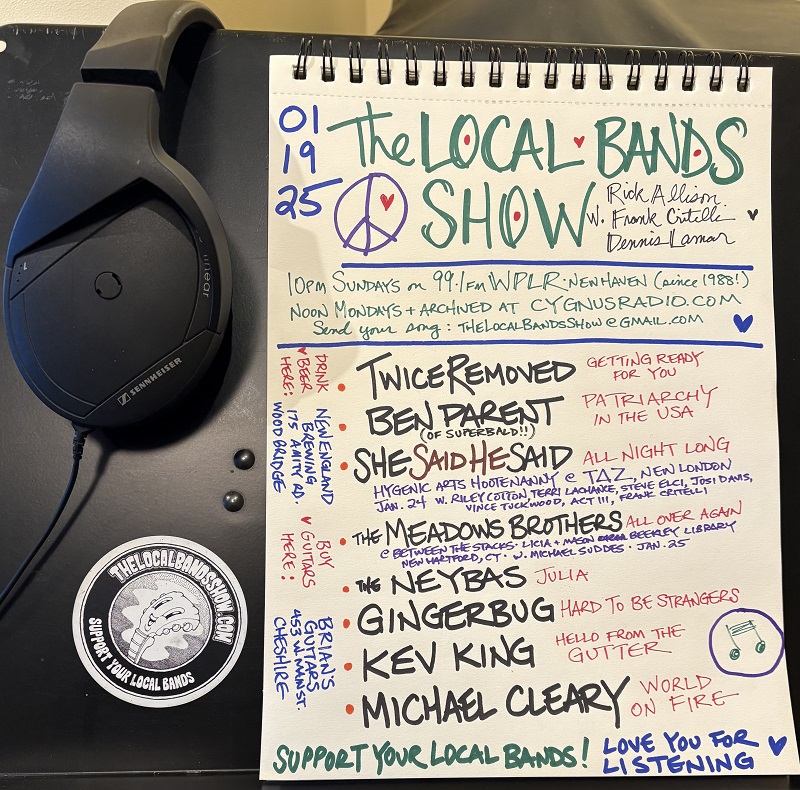 01
19
25
The LOCAL BANDS
SHOW
Rick Allison
w. Frank Critelli
Dennis Lamar
10PM SUNDAYS ON 99.1 FM WPLR · NEW HAVEN (since 1988!)
NOON MONDAYS + ARCHIVED AT CYGNUSRADIO.COM
Send your song: THELOCALBANDSSHOW@GMAIL.COM
DRINK
BEER
HERE:
NEW ENGLAND
BREWING
175 AMITY RD.
WOODBRIDGE
BUY
GUITARS
HERE:
BRIAN'S
GUITARS
453 W MAIN ST.
CHESHIRE
TWICE REMOVED GETTING READY
FOR YOU
BEN PARENT PATRIARCHY
IN THE USA
(OF SUPERBALD!!)
SHE SAID HE SAID ALL NIGHT LONG
HYGENIC ARTS HOOTENANNY @ TAZ, NEW LONDON
JAN. 24 W. RILEY COTTON, TERRI LACHANCE, STEVE ELCI, JOSI DAVIS,
VINCE TUCKWOOD, ACT III, FRANK CRITELLI
THE MEADOWS BROTHERS ALL OVER AGAIN
@ BETWEEN THE STACKS · LICIA + MASON BEEKLEY LIBRARY
NEW HARTFORD, CT · W. MICHAEL SUDDES · JAN. 25
THE NEYBAS JULIA
GINGERBUG HARD TO BE STRANGERS
KEV KING HELLO FROM THE
GUTTER
MICHAEL CLEARY WORLD
ON FIRE
SUPPORT YOUR LOCAL BANDS!
LOVE YOU FOR
LISTENING
SENNHEISER
THELOCALBANDSSHOW.COM
SUPPORT YOUR LOCAL BANDS